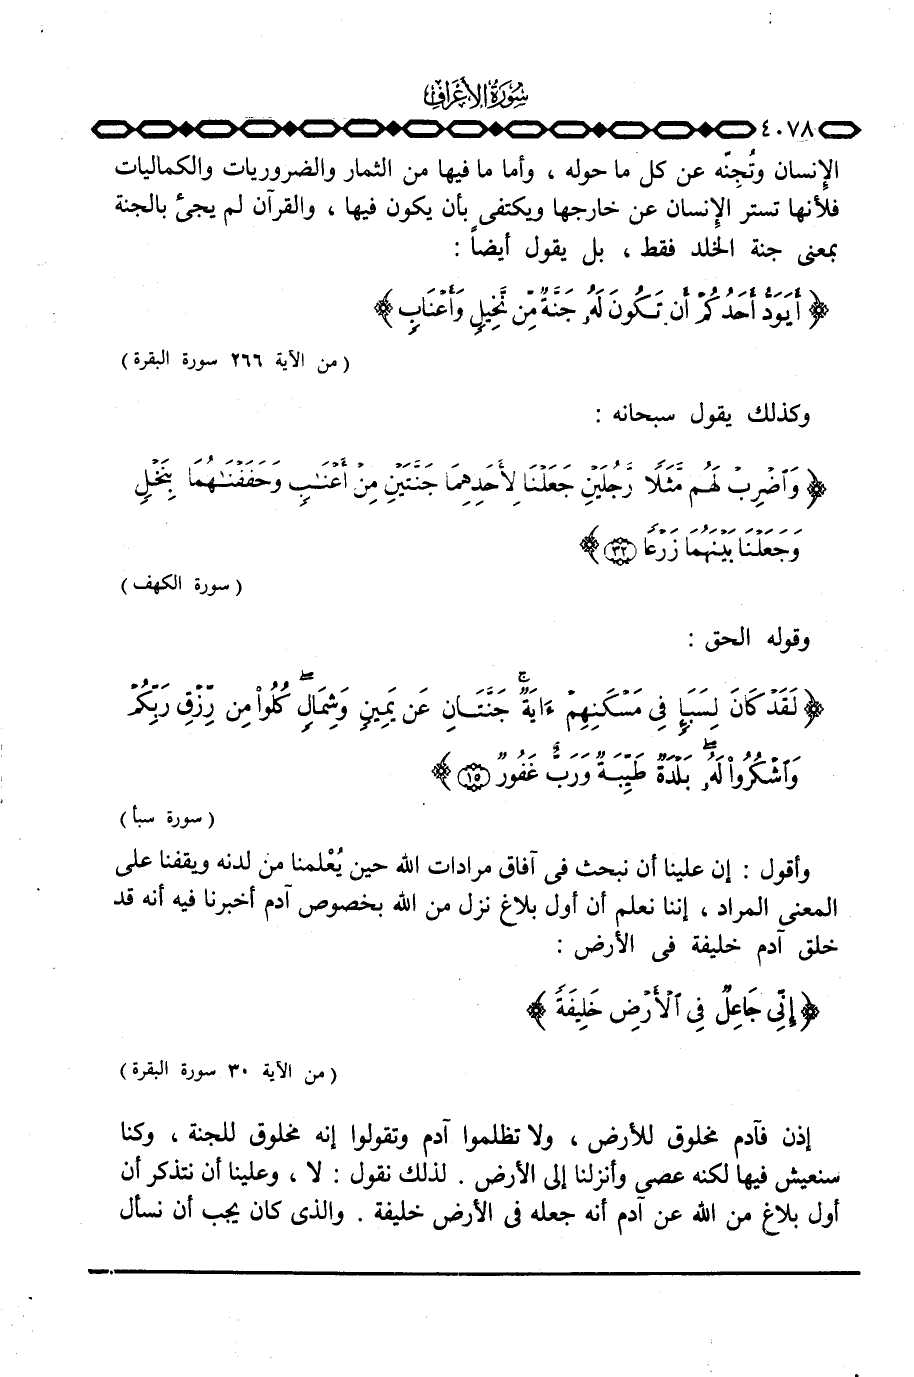 سورة الأعراف
٤٠٧٨
الإنسان وتُجِنّه عن كل ما حوله ، وأما ما فيها من الثمار والضروريات والكماليات
فلأنها تستر الإنسان عن خارجها ويكتفى بأن يكون فيها ، والقرآن لم يجئ بالجنة
بمعنى جنة الخلد فقط ، بل يقول أيضاً :
﴿ أَيَوَدُّ أَحَدُكُمْ أَن تَكُونَ لَهُۥ جَنَّةٌ مِّن نَّخِيلٍ وَأَعْنَابٍ ﴾
( من الآية ٢٦٦ سورة البقرة )
وكذلك يقول سبحانه :
﴿ وَٱضْرِبْ لَهُم مَّثَلًا رَّجُلَيْنِ جَعَلْنَا لِأَحَدِهِمَا جَنَّتَيْنِ مِنْ أَعْنَٰبٍ وَحَفَفْنَٰهُمَا بِنَخْلٍ
وَجَعَلْنَا بَيْنَهُمَا زَرْعًا ٣٢ ﴾
( سورة الكهف )
وقوله الحق :
﴿ لَقَدْ كَانَ لِسَبَإٍ فِى مَسْكَنِهِمْ ءَايَةٌ ۚ جَنَّتَانِ عَن يَمِينٍ وَشِمَالٍ ۖ كُلُوا۟ مِن رِّزْقِ رَبِّكُمْ
وَٱشْكُرُوا۟ لَهُۥ ۖ بَلْدَةٌ طَيِّبَةٌ وَرَبٌّ غَفُورٌ ١٥ ﴾
( سورة سبأ )
وأقول : إن علينا أن نبحث فى آفاق مرادات الله حين يُعْلمنا من لدنه ويقفنا على
المعنى المراد ، إننا نعلم أن أول بلاغ نزل من الله بخصوص آدم أخبرنا فيه أنه قد
خلق آدم خليفة فى الأرض :
﴿ إِنِّى جَاعِلٌ فِى ٱلْأَرْضِ خَلِيفَةً ﴾
( من الآية ٣٠ سورة البقرة )
إذن فآدم مخلوق للأرض ، ولا تظلموا آدم وتقولوا إنه مخلوق للجنة ، وكنا
سنعيش فيها لكنه عصى وأنزلنا إلى الأرض . لذلك نقول : لا ، وعلينا أن نتذكر أن
أول بلاغ من الله عن آدم أنه جعله فى الأرض خليفة . والذى كان يجب أن نسأل